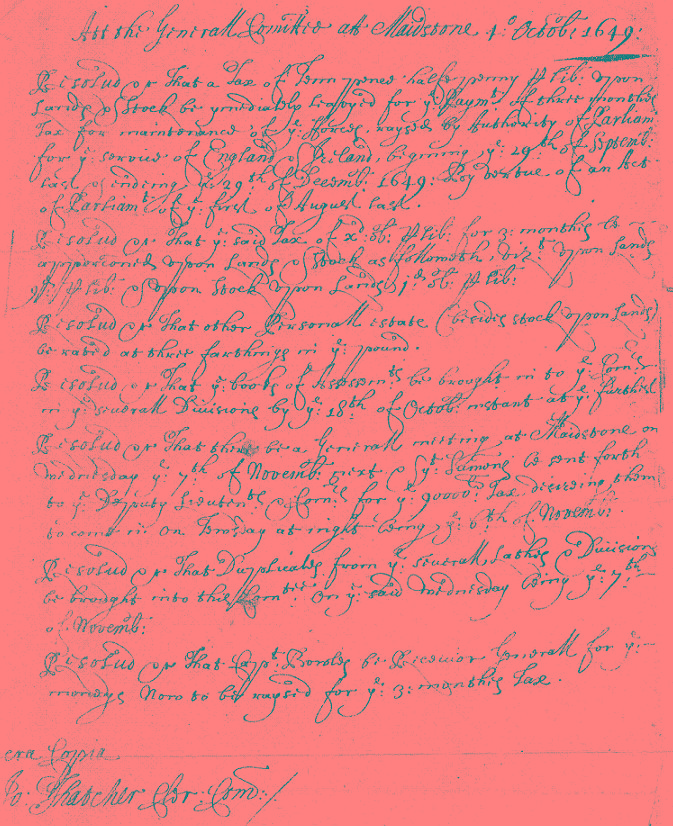 Att the Generall Comittee at Maidstone 4:o Octobr 1649:
Resolud &c That a Tax of Tenn pence halfe penny p lib: upon
Lands & Stock be imediately leavyed for ye: Paymt: of three monthes
Tax for maintenance of ye: fforces raysed by Authority of Parliam:
for ye: service of England & Ireland, begining ye: 29th of Septemb:
last & ending ye: 29th: of Decemb: 1649: By vertue of an Act
of Parliamt: of ye: first of August last.
Resolud &c That ye: said Tax of xd: ob: p lib: for 3: monthes be
apportioned upon Lands & Stock as followeth, vizt: upon Lands
9d: p lib: & upon Stock upon Lands 1d: ob: p lib:
Resolud &c That other Personall estate (besides stock upon Lands)
be rated at three farthings in ye: pound.
Resolud &c That ye: books of Assessmts: be brought in to ye: Comrs
in ye: severall Divisions by ye: 18th of Octob: instant at ye: furthest
Resolud &c That there be a Generall meeting at Maidstone on
Wednesday ye: 7th: of Novemb: next & yt: Sumons be sent forth
to ye: Deputy Lieutents & Comrs: for ye: 90000l: Tax desireing them
to come in on Tuesday at night being ye: 6th of Novemb:
Resolud &c That Duplicates from ye: severall Lathes & Divisions
be brought into this Comtee: On ye: said Wednesday being ye: 7th:
of Novemb:
Resolud &c That Capt: Bowles be Receivor Generall for ye:
moneys Now to be raysed for ye: 3: monthes Tax.
era Coppia
Jo: Thatcher Clr: Com:/